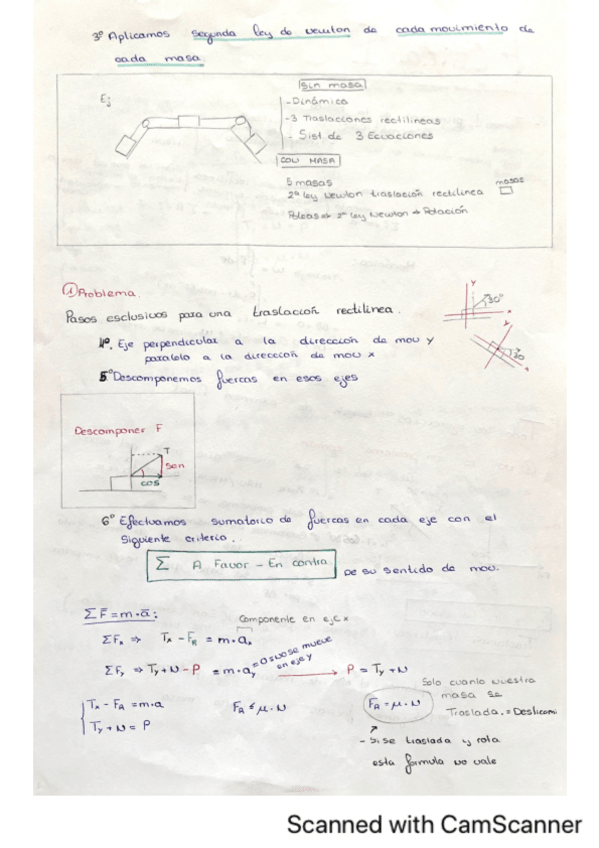 3º Aplicamos segunda ley de newton de cada movimiento de
cada masa.
Ej
Sin masa
- Dinámica
- 3 Traslaciones rectilineas
- Sist. de 3 Ecuaciones
CON MASA
5 masas
2ª ley Newton traslación rectilinea
masas
Poleas ⇒ 2ª ley Newton ⇒ Rotación
① Problema.
Pasos esclusivos para una traslación rectilinea.
4º. Eje perpendicular a la dirección de mov y
paralelo a la dirección de mov x
y
30º
x
y
30
x
5º Descomponemos fuerzas en esos ejes
Descomponer F
T
sen
cos
6º Efectuamos sumatorio de fuerzas en cada eje con el
siguiente criterio..
Σ A Favor - En contra
De su sentido de mov.
ΣF̄ = m·ā:
Componente en eje x
ΣFx ⇒ Tx - FR = m·ax
ΣFy ⇒ Ty + N - P = m·ay = 0 si no se mueve
en eje y
P = Ty + N
Tx - FR = m·a
Ty + N = P
FR ≤ μ·N
FR = μ·N
Solo cuando nuestra
masa se
Traslada. = Deslicemi
- Si se traslada y rota
esta formula no vale
Scanned with CamScanner